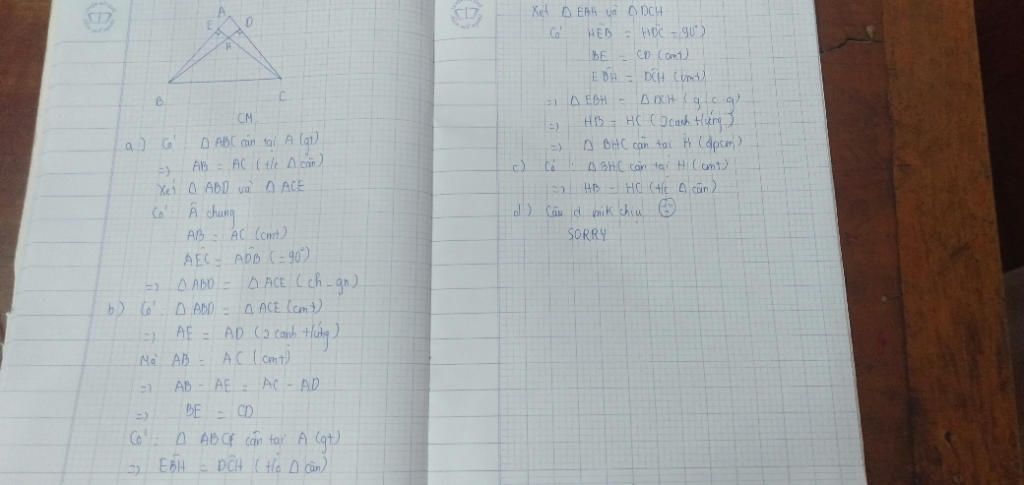 A
E D
H
B C
CM
a) Có : Δ ABC cân tại A (gt)
=> AB = AC (t/c Δ cân)
Xét Δ ABD và Δ ACE
Có : Â chung
AB = AC (cmt)
AÊC = AD̂B (= 90°)
=> Δ ABD = Δ ACE (ch - gn)
b) Có : Δ ABD = Δ ACE (cmt)
=> AE = AD (2 cạnh t/ứng)
Mà AB = AC (cmt)
=> AB - AE = AC - AD
=> BE = CD
Có : Δ ABC cân tại A (gt)
=> EB̂H = DĈH (t/c Δ cân)
Xét Δ EBH và Δ DCH
Có HÊB = HD̂C (= 90°)
BE = CD (cmt)
EB̂H = DĈH (cmt)
=> Δ EBH = Δ DCH (g . c . g)
=> HB = HC (2 cạnh t/ứng)
=> Δ BHC cân tại H (đpcm)
c) Có : Δ BHC cân tại H (cmt)
=> HB = HC (t/c Δ cân)
d) Câu d mik chịu
SORRY